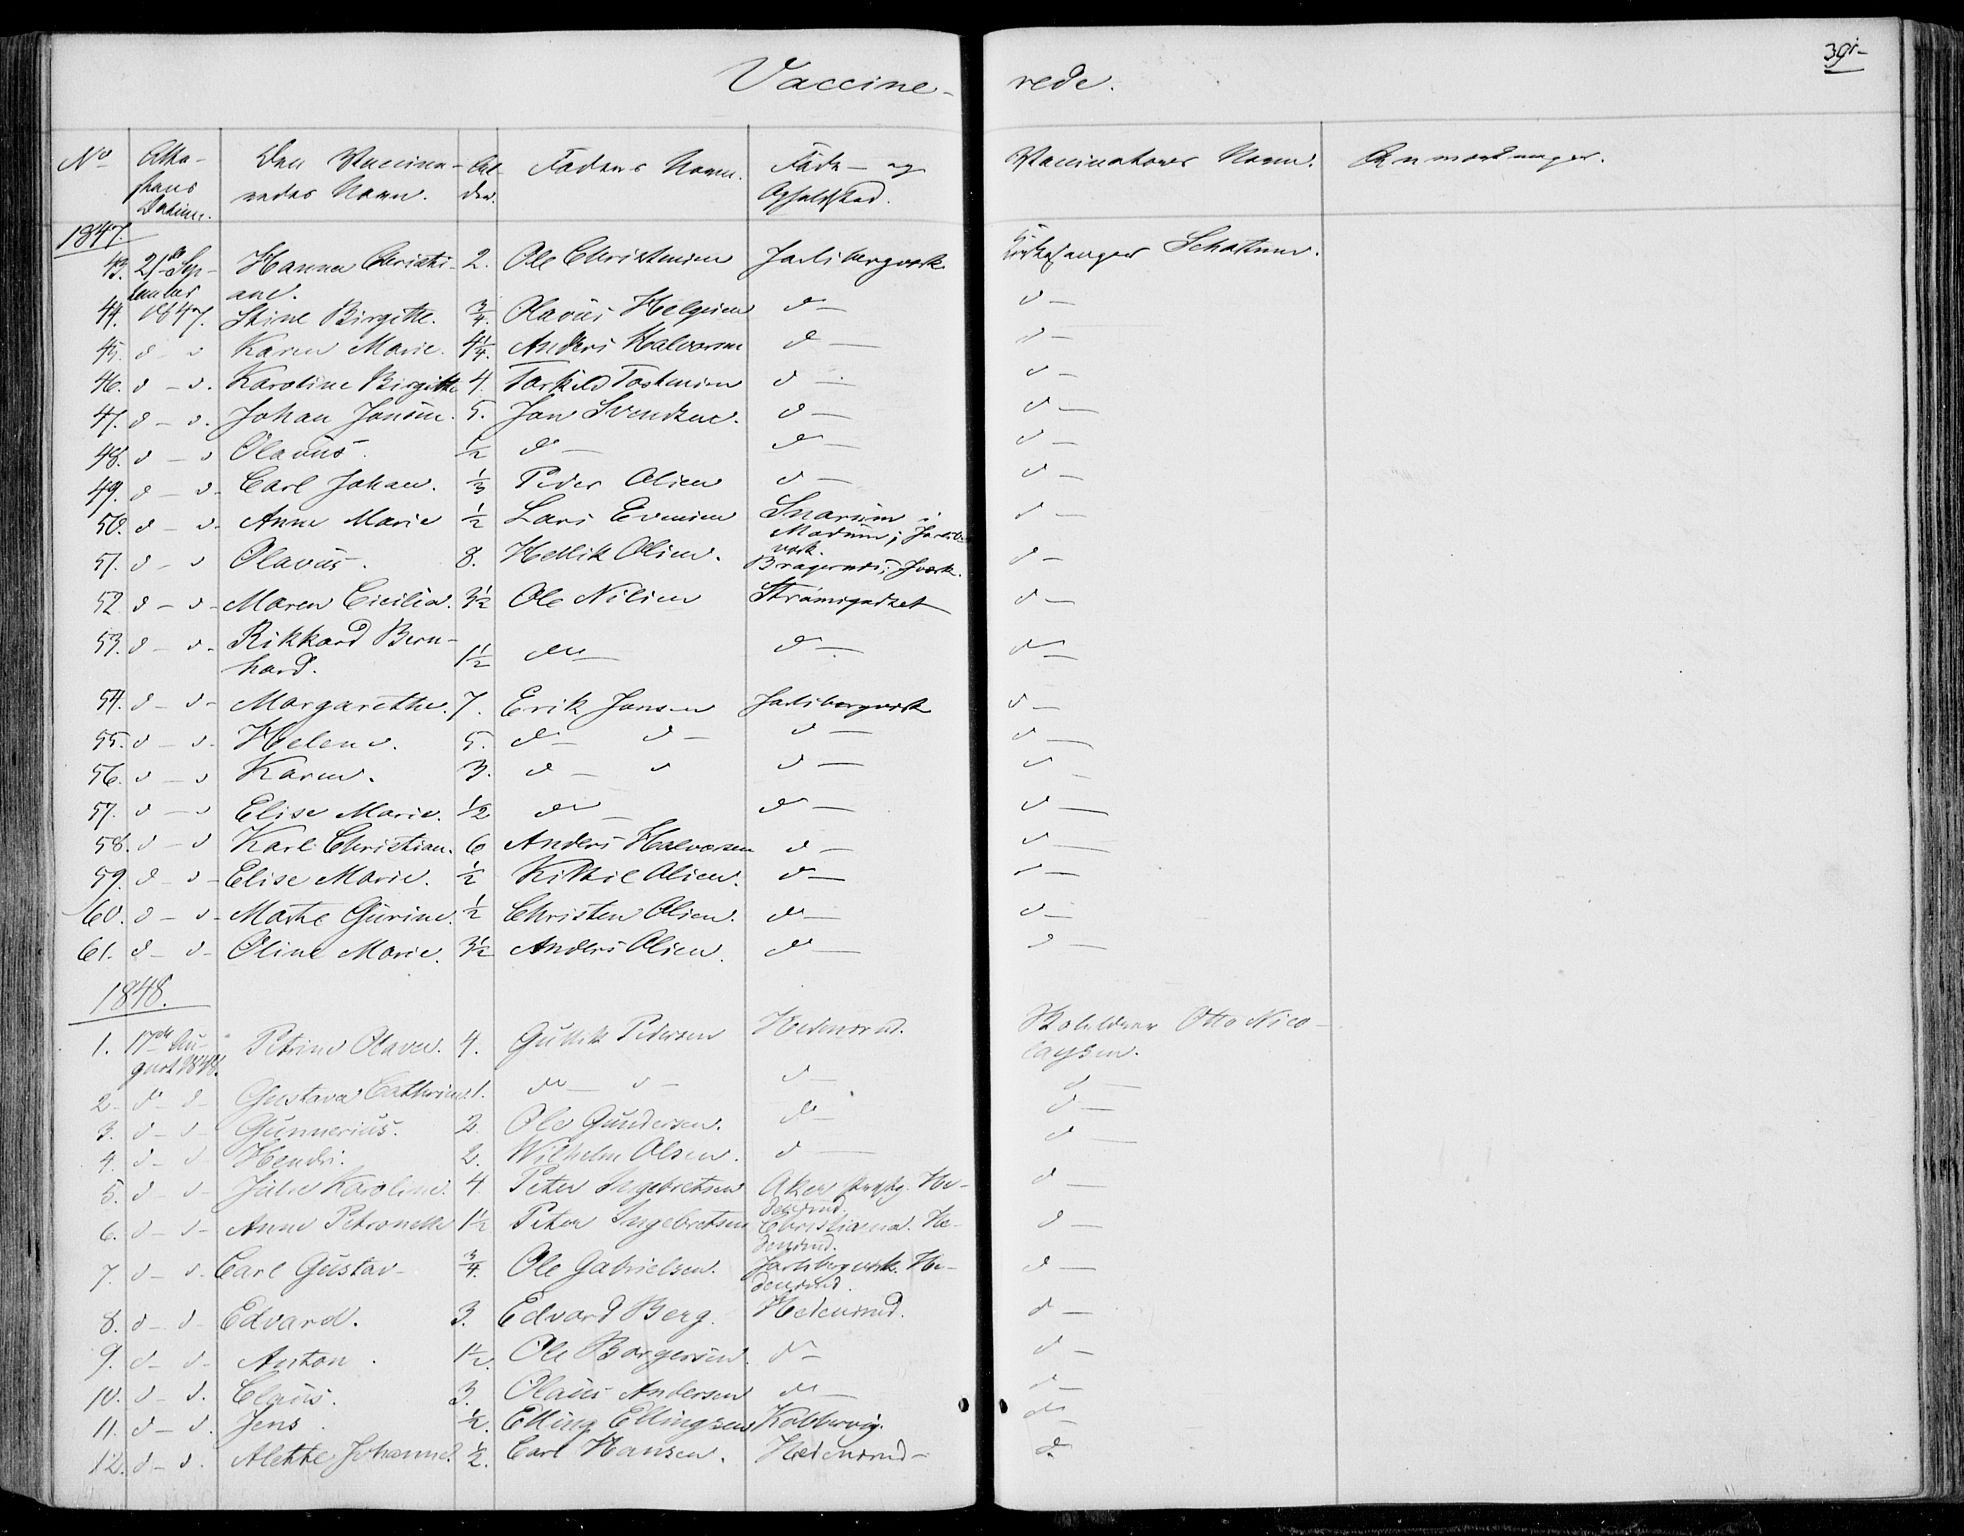 391-
Vaccine- rede.
No Atte- Den Vaccine- Al- Faders Navn. Føde- og Vaccinateurs Navn. Anmærkninger.
stens redes Navn. der. Opholdsted.
Datum.
1847.
43. 21de Sep- Hanna Christi- 2. Ole Christensen Jarlsbergværk Kirkesanger Schatum.
tember ane.
44. 1847. Stine Birgitte. 3/4. Olavus Helgesen d - d -
45. d - d Karen Marie. 4 1/4. Anders Halvorsen d - d -
46. d - d. Karoline Birgitte 4. Torkild Tostensen d - d -
47. d - d. Johan Jonsen. 5. Jon Svendsen. d - d -
48. d - d Olavus. 1/2 d - d - d -
49. d - d - Carl Johan. 1/3 Peder Olsen d - d -
50. d - d - Anne Marie 1/2 Lars Evensen Snarum i d -
Modum; Jarlsb
værk.
51. d - d Olavus. 8. Hellik Olsen. Bragernes; Jværk. d -
52 d - d - Maren Cicilia. 3 1/2 Ole Nilsen Strømsgodset d -
53. d - d - Rikkard Bern- 1 1/2 do - d - d -
hard.
54. d - d - Margarethe. 7. Erik Jonsen Jarlsbergværk d -
55. d - d. Helene. 5. d - d - d - d -
56. d - d Karen. 3. d - d d - d -
57. d - d Elise Marie. 1/2 do - d - d -
58. d - d Karl Christian. 6 Anders Halvorsen d - d -
59. d - d - Elise Marie. 1/2 Kittil Olsen. d - d -
60. d - d - Marthe Gurine. 1/2 Christen Olsen. d - d -
61. d - d - Oline Marie. 3 1/2 Anders Olsen. d - d -
1848.
1. 17de Au- Petrine Olava. 4. Gullik Pedersen Hedensrud. Skolelærer Otto Nico-
gust 1848. laysen.
2. d - d - Gustava Cathrine. 1. do - d - d - d -
3. d - d - Gunnerius. 2. Ole Gundersen. d - d -
4. d - d Hendri. 2. Wilhelm Olsen. d - d -
5. d - d - Julie Karoline. 4. Peter Ingebretsen Aker He- d -
densrud.
6. d - d - Anne Petronelle 1 1/2 Peter Ingebretsen Christiania. He- d -
densrud.
7. d - d. Carl Gustav - 3/4. Ole Gabrielsen. Jarlsbergværk. He- d -
densrud.
8. d - d - Edvard. 3. Edvard Berg. Hedensrud. d -
9. d - d - Anton. 1 1/2. Ole Borgersen. d - d -
10. d - d. Claus. 3. Olaus Andersen do - d -
11. d - d. Jens. 1/2. Elling Ellingsen Kobbervig. do -
12. d - d. Alethe Johanne. 1/2. Carl Hansen. Hedensrud - d.